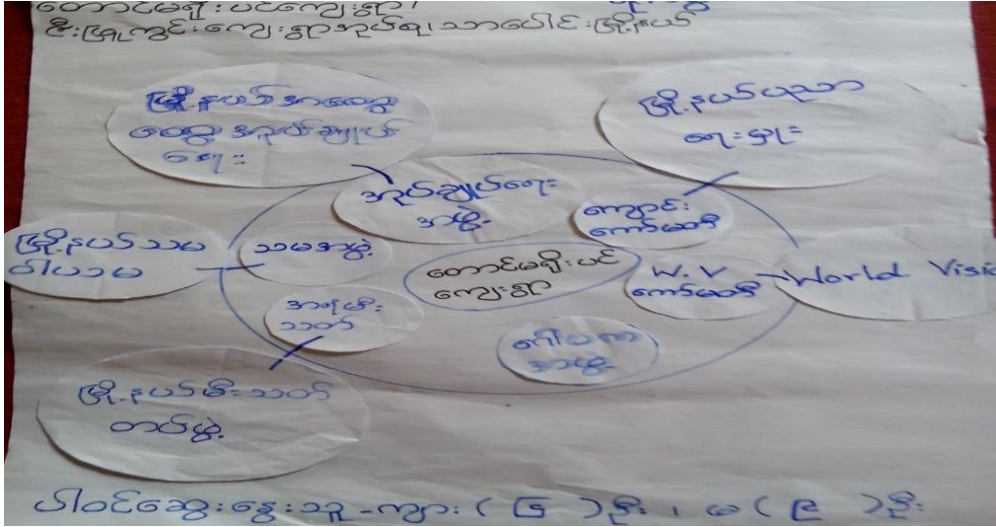 တောင်မရိုးပင်ကျေးရွာ၊
ဦးဖြူကွင်းကျေးရွာအုပ်စု၊ သာပေါင်းမြို့နယ်
မြို့နယ်အထွေ
ထွေအုပ်ချုပ်
ရေး
မြို့နယ်ပညာ
ရေးမှုး
အုပ်ချုပ်ရေး
အဖွဲ့
ကျောင်း
ကော်မတီ
မြို့နယ်သမ
ဝါယမ
သမအဖွဲ့
တောင်မရိုးပင်
ကျေးရွာ
W.V
ကော်မတီ
World Visi
အရံမီး
သတ်
ဂေါပက
အဖွဲ့
မြို့နယ်မီးသတ်
တပ်ဖွဲ့
ပါဝင်ဆွေးနွေးသူ-ကျား ( ၆ ) ဦး ၊ မ ( ၉ ) ဦး